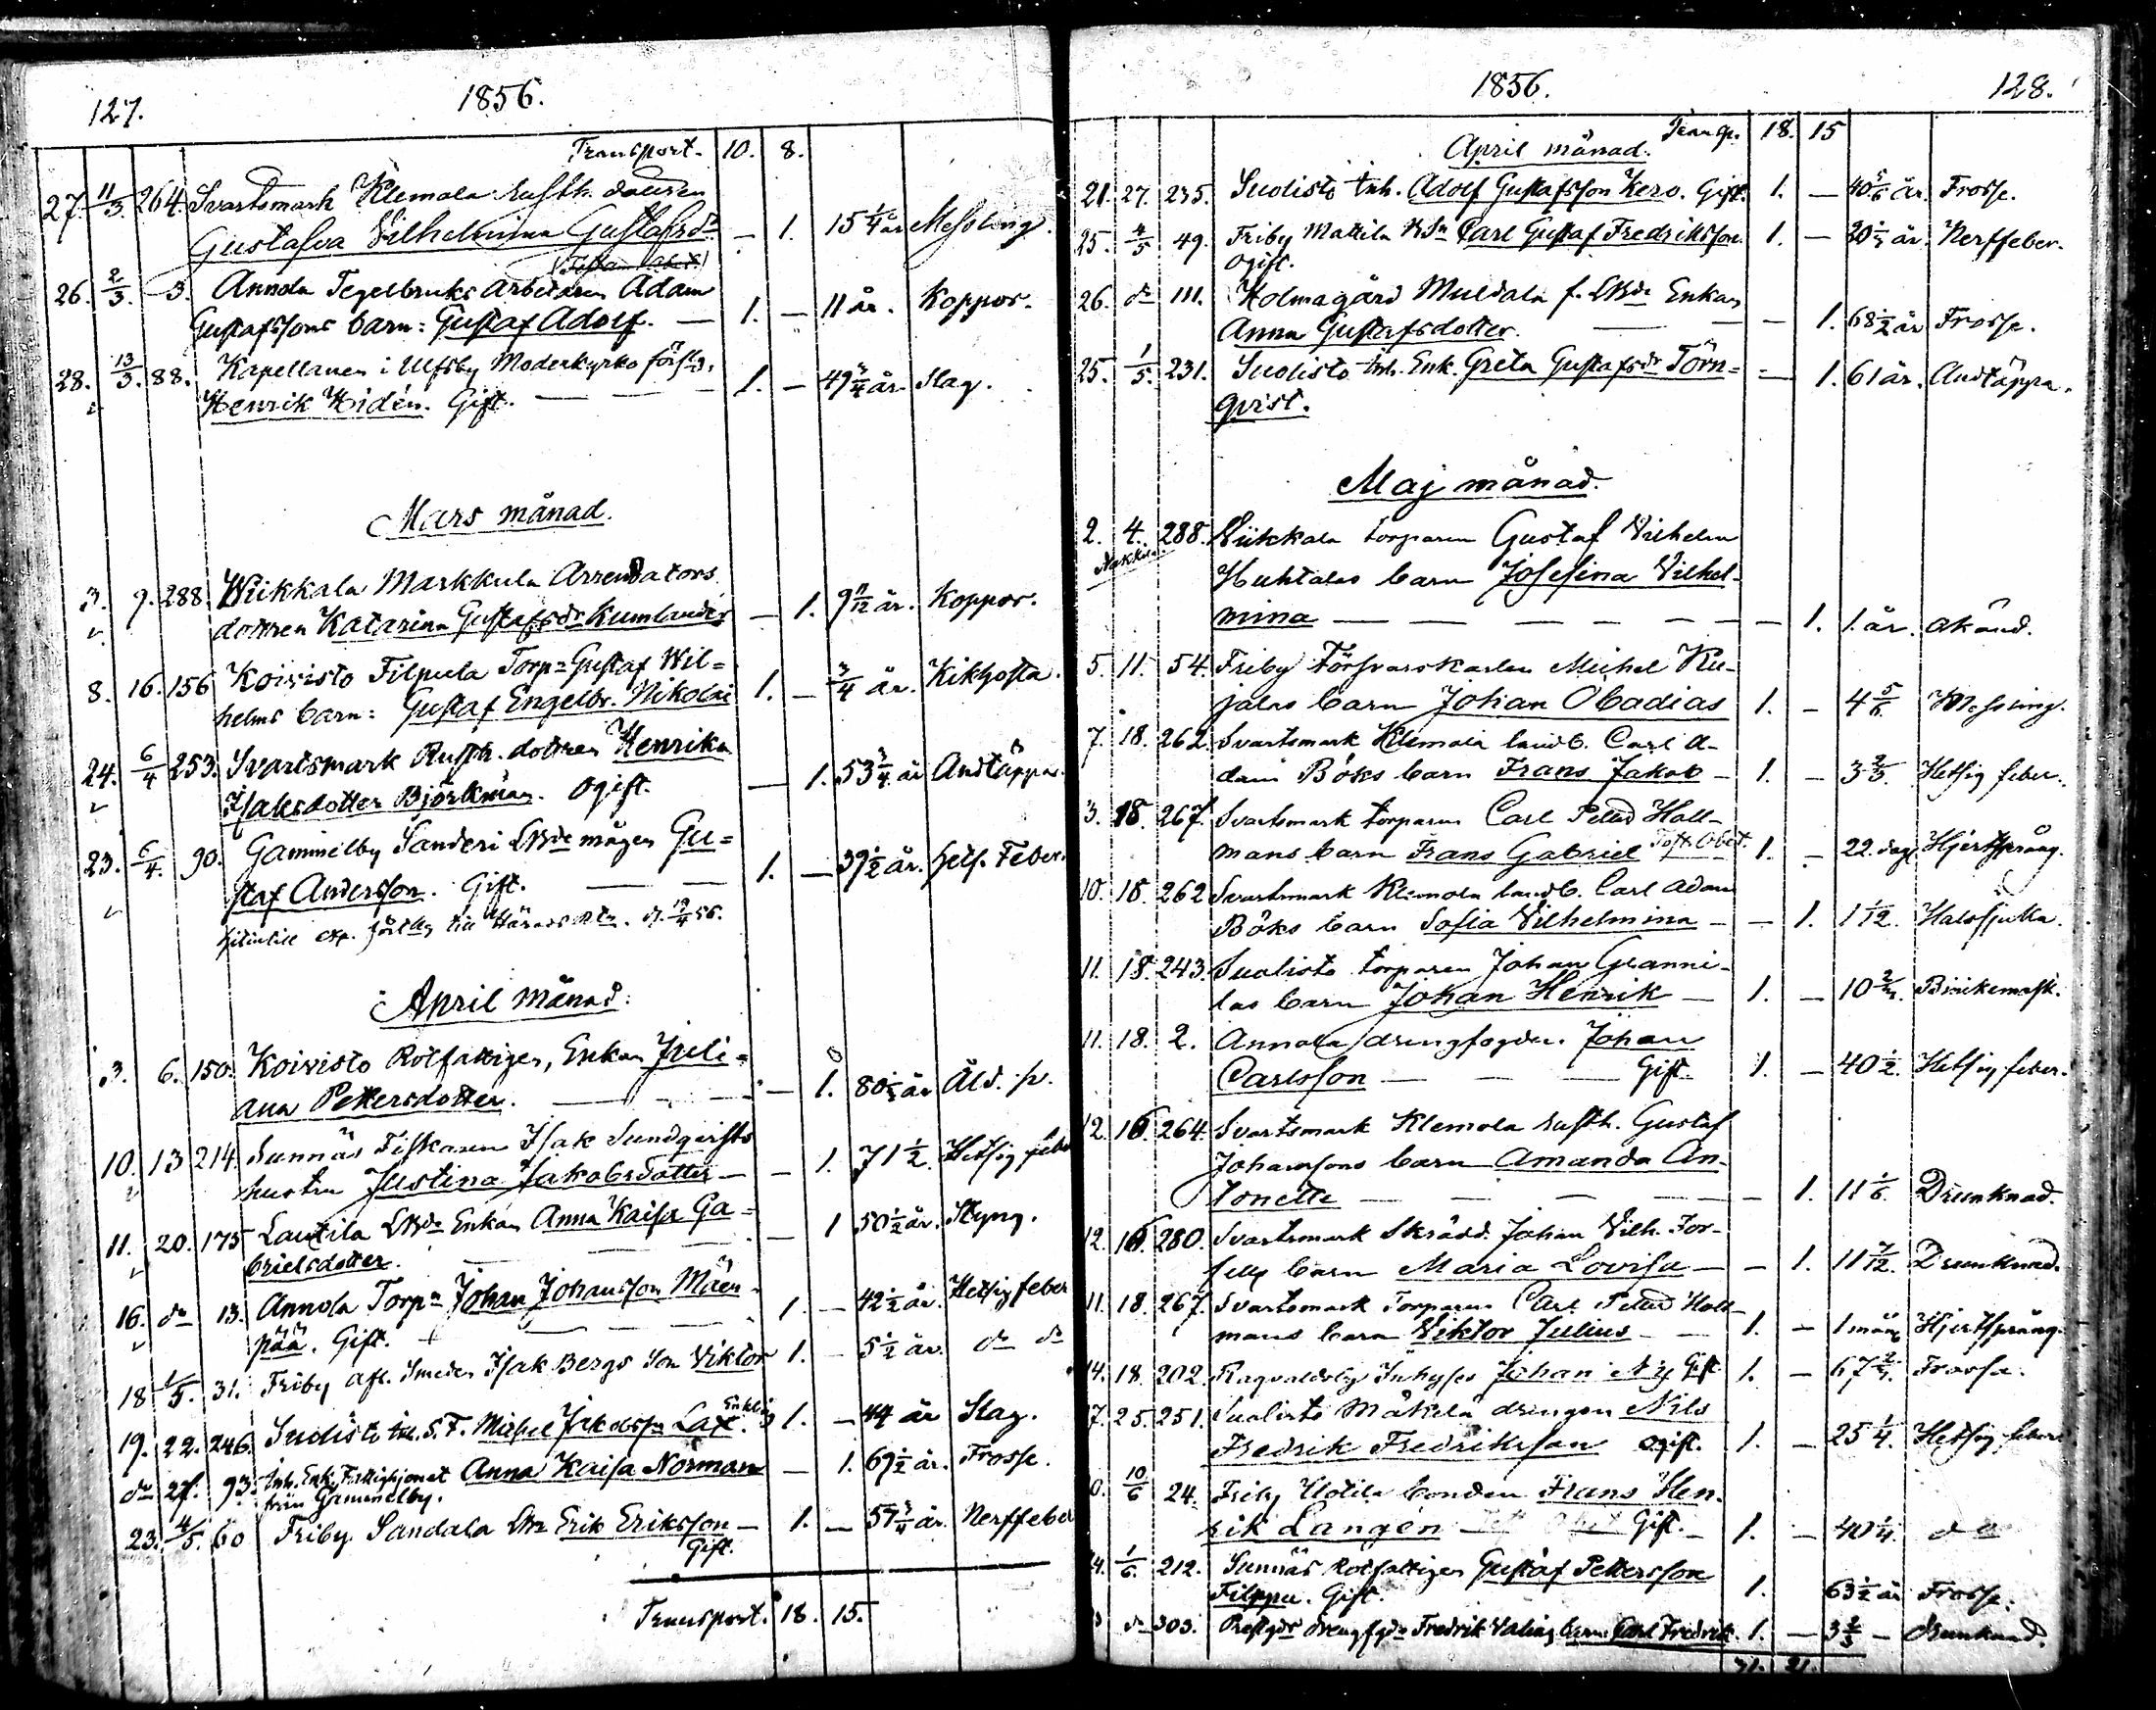 127. 1856.
Transport. 10. 8.
27. 11/3. 264. Svartsmark Klemola Rusth. dottren
Gustafva Vilhelmina Gustafsdr — 1. 15 1/4 år Messling.
26. 2/3. 3. Annola Tegelbruks Arbetaren Adam
Gustafssons barn: Gustaf Adolf. — 1. — 11 år. Koppor.
28. 13/3. 88. Kapellanen i Ulfsby Moderkyrko förslg.
Henrik Hidén. Gift. — 1. — 49 3/4 år Slag.
Mars månad.
3. 9. 288. Wiikkala Markkula Arrendators
dottren Katarina Gustafsdr Kumlander — 1. 9 11/12 år. Koppor.
8. 16. 156 Koivisto Filpula Torp. Gustaf Wil=
helms barn: Gustaf Engelbr. Nikolai 1. — 3/4 år. Kikhosta.
24. 6/4 253. Svartsmark Rusth. dottren Henrika
Isaksdotter Björkman. Ogift. — 1. 53 3/4 år Andtäppa.
23. 6/4. 90. Gammelby Sanderi Lbde mågen Gu=
staf Andersson. Gift. — 1. — 39 1/2 år. Hets. Feber.
April månad.
3. 6. 150. Koivisto Rotfattigen, Enkan Juli=
ana Pettersdotter. — 1. 80 år Åld. sv.
10. 13 214. Sunnäs Fiskaren Isak Sundqvists
hustru Justina Jakobsdotter — 1. 71 1/2. Hetsig feber
11. 20. 175 Lautila Lbde Enkan Anna Kaisa Ga=
brielsdotter. — 1 50 1/2 år. Styng.
16. do 13. Annola Torpn Johan Johansson Mäen=
pää. Gift. 1. — 42 1/2 år. Hetsig feber
18 1/5. 31. Friby afl. Smeden Isak Bergs Son Viktor 1. — 5 1/2 år. do do
19. 22. 246. Suolisto inh. S. F. Michel Jakobsson Lax. Enkling 1. — 44 år Slag.
do 27. 93. Inh. Enk. Fattighjonet Anna Kaisa Norman — 1. 69 1/2 år. Frosse.
från Gammelby.
23. 4/5. 60 Friby Sandala Erik Eriksson — 1. — 57 3/4 år. Nerffeber
Gift.
Transport. 18. 15.
1856. 128.
Transp. 18. 15
April månad.
21. 27. 235. Suolisto inh. Adolf Gustafsson Kero. Gift. 1. — 40 5/6 år. Frosse.
25. 4/5 49. Friby Mattila Carl Gustaf Fredriksson. 1. — 20 år. Nerffeber.
ogift.
26. do 111. Holmagård Muldala f. Lbde Enkan
Anna Gustafsdotter. — 1. 68 1/2 år Frosse.
25. 1/5. 231. Suolisto Inh. Enk. Greta Gustafsdr Törn= — 1. 61 år. Andtäppa.
qvist.
Maj månad.
2. 4. 288. Wiikkala torparen Gustaf Vilhelm
Huhtalas barn Josefina Vilhel-
mina — 1. 1 år. okänd.
5. 11. 54. Friby Försvarskarlen Michel Ku-
jalas barn Johan Obadias 1. — 4 5/6. Messling.
7. 18. 262. Svartsmark Klemola landb. Carl A-
dam Böks barn Frans Jakob — 1. — 3 2/3. Hetsig feber.
3. 18. 267. Svartsmark torparen Carl Petter Holl-
mans barn Frans Gabriel 1. — 22 dag. Hjertsprång.
10. 18. 262 Svartsmark Klemola landb. Carl Adam
Böks barn Sofia Vilhelmina — — 1. 1 1/12. Halssjuka.
11. 18. 243. Suolisto torparen Johan Granni-
las barn Johan Henrik — 1. — 10 Binnikemask.
11. 18. 2. Annola drengfogden Johan
Carlsson — Gift. 1. — 40 1/2. Hetsig feber.
12. 16. 264. Svartsmark Klemola rusth. Gustaf
Johanssons barn Amanda An-
tonette — 1. 11 1/6. Drunknad.
12. 16. 280. Svartsmark Skrädd. Johan Vilh. For-
sells barn Maria Lovisa — — 1. 11 7/12. Drunknad.
11. 18. 267. Svartsmark Torparen Carl Petter Holl-
mans barn Viktor Julius — 1. — 1 mån. Hjertsprång.
14. 18. 202. Ragvaldsby Inhyses Johan Ny Gift 1. — 67 Frossa.
17. 25. 251. Suolisto Mäkelä drengen Nils
Fredrik Fredriksson ogift. 1. — 25 1/4. Hetsig feber
10/6 24. Friby Uotila bonden Frans Hen-
rik Langén Gift. — 1. — 40 1/4. do
1/6. 212. Sunnäs Rotfattigen Gustaf Pettersson
Filppu. Gift. 1. 63 1/2 år Frosse.
do 303. Prestgdr drengfgdn Fredrik Valins barn Carl Fredrik. 1. — 3 2/3 — Drunknad.
31. 21.